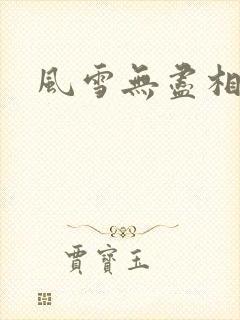 風雪無盡相
賈寶玉